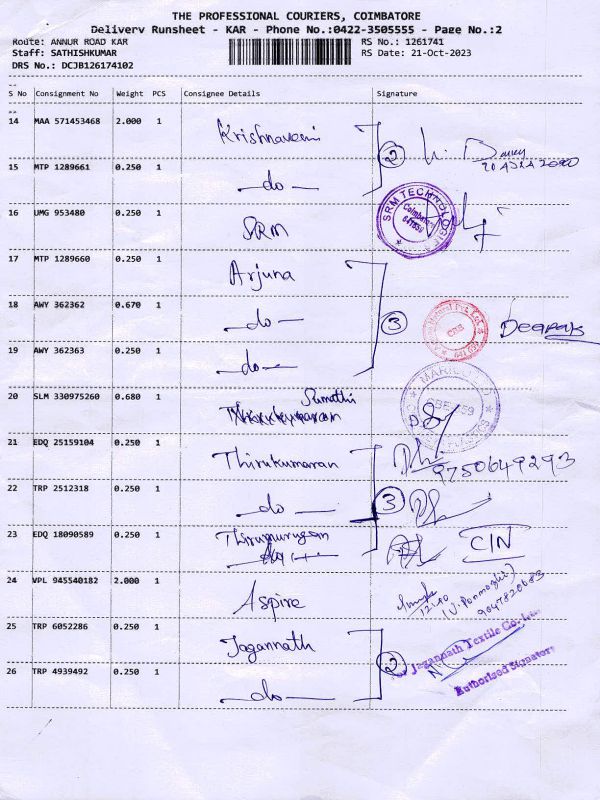 THE PROFESSIONAL COURIERS, COIMBATORE
Delivery Runsheet - KAR - Phone No.:0422-3505555 - Page No.:2
Route: ANNUR ROAD KAR
RS No.: 1261741
Staff: SATHISHKUMAR
RS Date: 21-Oct-2023
DRS No.: DCJB126174102
S No Consignment No Weight PCS Consignee Details Signature
14 MAA 571453468 2.000 1 Krishnaveni
15 MTP 1289661 0.250 1 do
2
16 UMG 953480 0.250 1 SRM
SRM TECHNOLOGIES
Coimbatore
17 MTP 1289660 0.250 1 Arjuna
18 AWY 362362 0.670 1 do
3
19 AWY 362363 0.250 1 do
20 SLM 330975260 0.680 1 Sumathi
21 EDQ 25159104 0.250 1 Thirukumaran
9750649293
22 TRP 2512318 0.250 1 do
3
23 EDQ 18090589 0.250 1 Thirumurugan
CIN
24 VPL 945540182 2.000 1 Aspire
12:10
25 TRP 6052286 0.250 1 Jagannath
Jagannath Textile Co.
Authorised Signatory
2
26 TRP 4939492 0.250 1 do